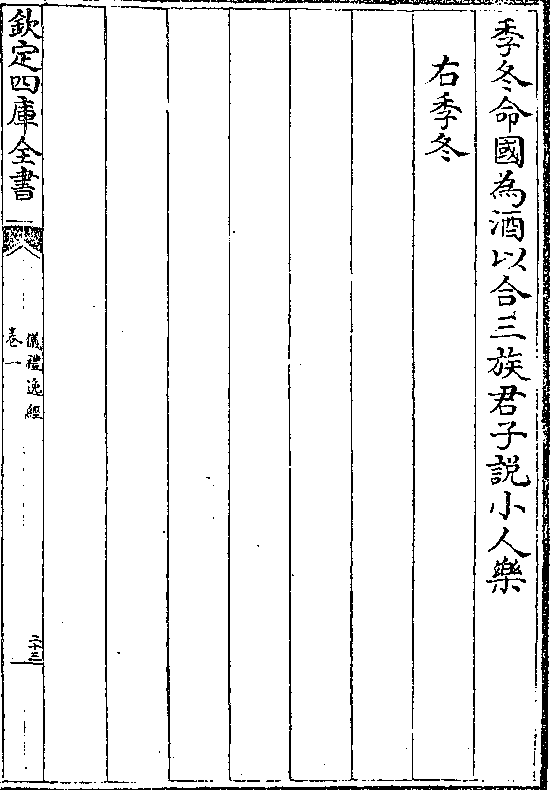 季冬命國為酒以合三族君子説小人樂
右季冬
欽定四庫全書
儀禮逸經
卷一
二十三